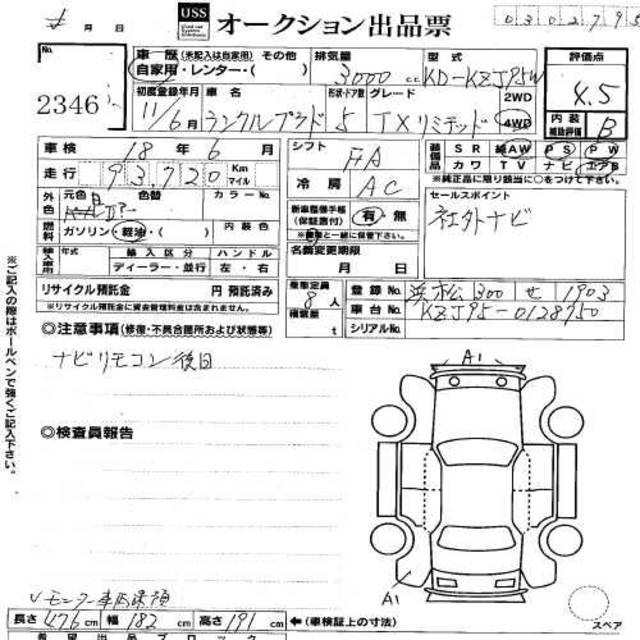 月 日
USS
オークション出品票
0302795
No.
2346
車歴 (未記入は自家用) その他
自家用・レンター・( )
排気量
3000 cc
型式
KD-KZJ95W
評価点
4.5
内装
補助評価
B
初度登録年月
11/6月
車名
ランクルプラド
形状・ドア数
5
グレード
TXリミテッド
2WD
4WD
車検
18 年 6 月
走行
93,720 Km
マイル
シフト
FA
冷房
AC
装備品
SR 純AW PS PW
カワ TV ナビ エアB
※純正品に限り該当に○をつけて下さい。
外色
元色 色替
カラーNo.
燃料
ガソリン・軽油・( )
内装色
新車整備手帳
(保証書付)
有・無
※車検と一緒に保管下さい。
セールスポイント
社外ナビ
輸入車用
年式
輸入区分
ハンドル
ディーラー・並行
左・右
名義変更期限
月 日
リサイクル預託金
円 預託済み
※リサイクル預託金に資金管理料金は含まれません。
乗車定員
8人
積載量
t
登録No.
浜松300 せ 1903
車台No.
KZJ95-0128950
シリアルNo.
◎注意事項 (修復・不具合箇所および状態等)
ナビリモコン後日
◎検査員報告
※ご記入の際はボールペンで強くご記入下さい。
A1
A1
スペア
長さ 476cm 幅 182cm 高さ 191cm ←(車検証上の寸法)
希望出品ブロック